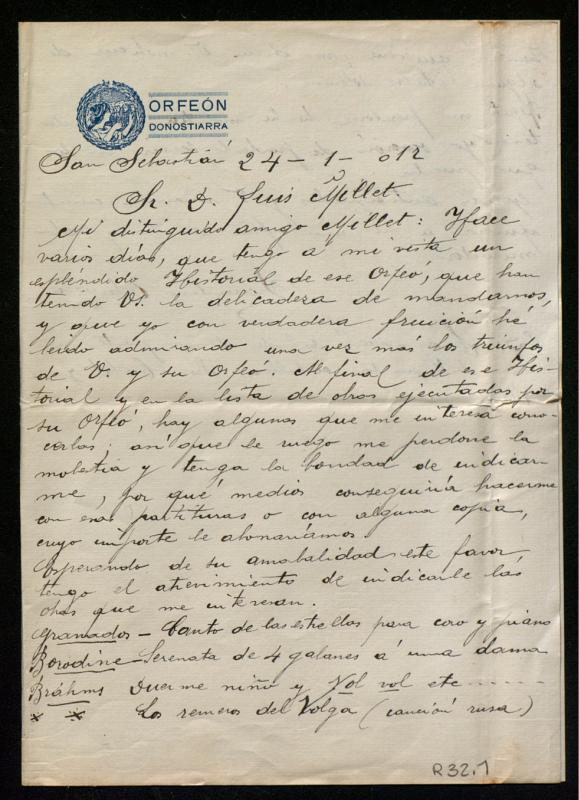 ORFEÓN
DONOSTIARRA
San Sebastián 24-1-912
Sr. D. Luis Millet.
Mi distinguido amigo Millet: Hace
varios días, que tengo a mi vista un
espléndido Historial de ese Orfeo, que han
tenido Vs. la delicadeza de mandarnos,
y que yo con verdadera fruición hé
leido admirando una vez más los triunfos
de V. y su Orfeó. Al final de ese His-
torial y en la lista de obras ejecutadas por
su Orfeó, hay algunas que me interesá cono-
cerlas; así que le ruego me perdone la
molestia y tenga la bondad de indicar-
me, por qué medios conseguiría hacerme
con esas partituras o con alguna copia,
cuyo importe le abonaríamos.
Esperando de su amabalidad este favor,
tengo el atrevimiento de indicarle las
obras que me interesan.
Granados - Canto de las estrellas para coro y piano
Borodine - Serenata de 4 galanes á una dama
Bráhms Duerme niño y Vol vol etc ......
* * Los remeros del Volga (canción rusa)
R32.1